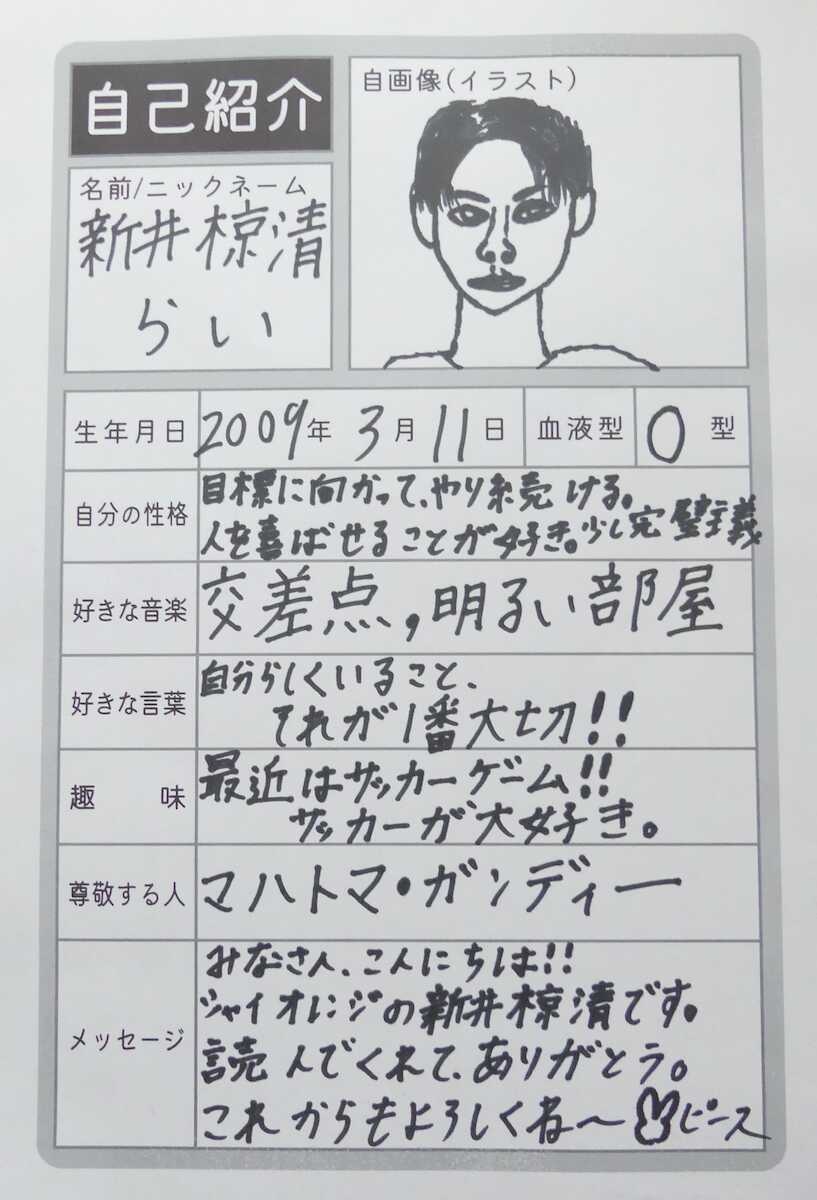 自己紹介
自画像(イラスト)
名前/ニックネーム
新井椋清
らい
生年月日 2009年 3月 11日 血液型 O型
自分の性格
目標に向かって、やり続ける。
人を喜ばせることが好き。少し完璧主義
好きな音楽 交差点,明るい部屋
好きな言葉
自分らしくいること、
それが1番大切!!
趣味
最近はサッカーゲーム!!
サッカーが大好き。
尊敬する人 マハトマ・ガンディー
メッセージ
みなさん、こんにちは!!
シャイオレンジの新井椋清です。
読んでくれて、ありがとう。
これからもよろしくね〜 ピース